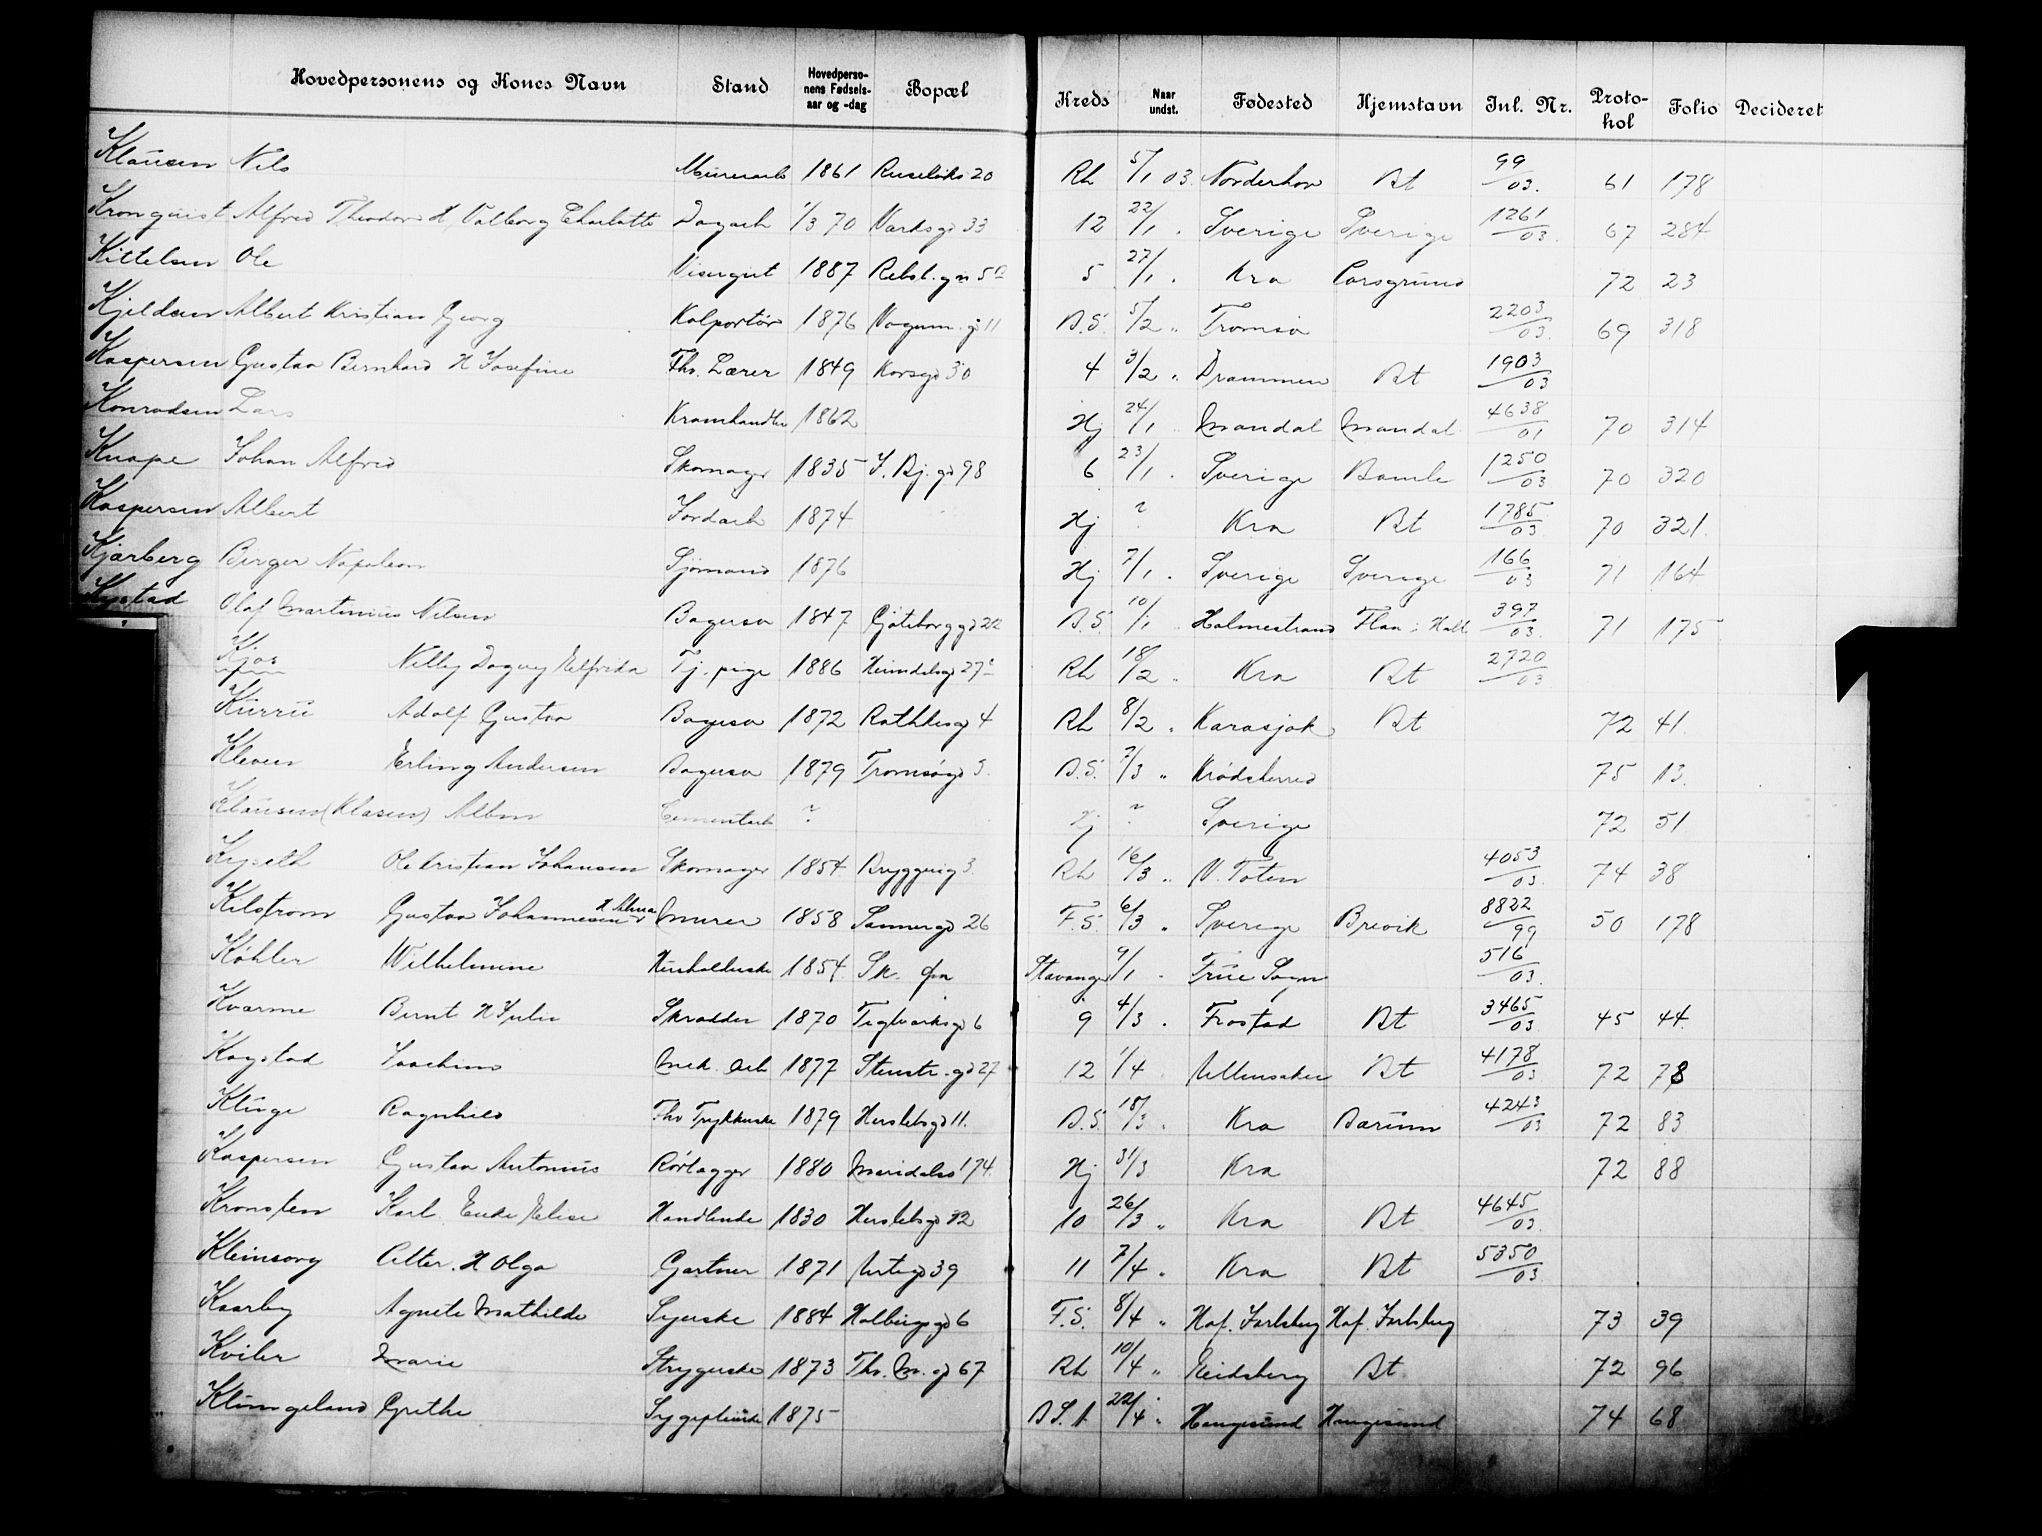 Hovedpersonens og Kones Navn Stand Hovedpersonens Fødselsaar og -dag Bopæl Kreds Naar undst. Fødested Hjemstavn Inl. Nr. Protokol Folio Decideret
Klausen Nils Murerarb 1861 Ruseløkv 20 Rh 5/1 03. Norderhov Bt 99/03. 61 178
Kronquist Alfred Theodor H Valborg Charlotte Dagarb 1/3 70 Verksgd 33 12 22/1 . Sverige Sverige 1261/03. 67 284
Kittelsen Ole Visergut 1887 5 27/1 . Kra Porsgrund 72 23
Kjeldsen Albert Kristian Georg Kolportør 1876 11 B.S. 5/2 " Tromsø 2203/03. 69 318
Kaspersen Gustav Bernhard H Josefine Fhv. Lærer 1849 Korsgd 30 4 3/2 " Drammen Bt 1903/03
Konradsen Lars Kramhandler 1862 Hj 24/1 Mandal Mandal 4638/01 70 314
Knape Johan Alfred Skomager 1835 98 6 23/1 . Sverige Bamle 1250/03 70 320
Kaspersen Albert Jordarb 1874 Hj ? Kra Bt 1785/03. 70 321.
Kjærberg Birger Napoleon Sjømand 1876 Hj 7/1 . Sverige Sverige 166/03 71 164
Kystad Olaf Martinius Nilsen Bagersv 1847 Gøteborggd 22 B.S. 10/1 " Holmestrand Flaa i Hall. 397/03. 71 175
Kjøs Nelly Dagny Elfrida Tj. pige 1886 Heimdalsgd 27 Rh 18/2 " Kra Bt 2720/03
Kurru Adolf Gustav Bagersv 1872 Rathkesgd 4 Rh 8/2 " Karasjok Bt 72 41.
Kleven Erling Andersen Bagersv 1879 Tromsøgd 3. B.S. 7/3 " Krødsherred 75 13.
Klausen (Klasen) Albin Cementarb ? Hj ? Sverige 72 51
Kyseth Ole Kristian Johansen Skomager 1854 Bryggerig 3. Rh 16/3 " V. Toten 4053/03. 74 38
Kilstrøm Gustav Johannesen H Alma Murer 1858 Sannergd 26 F.S. 6/3 " Sverige Brevik 8822/99 50 178
Køhler Wilhelmine Husholderske 1854. Sk. Stavanger 9/1 . Frue Sogn 516/03.
Kvarme Bernt H Julie Skrædder 1870 Teglverksgd 6 9 4/3 . Frostad Bt 3465/03. 45 44.
Kogstad Joachim Mek. Arb 1877 Stenstr. gd 27 12 1/4 Ullensaker Bt 4178/03. 72 78
Kluge Ragnhild Fhv Trykkerske 1879 Herslebsgd 11. B.S. 18/3 . Kra Bærum 4243/03 72 83
Kaspersen Gustav Antonius Rørlægger 1880 Maridalsv 174. Hj 31/3 Kra 72 88
Kronsten Karl, Enke Elise Handlende 1830 Herslebsgd 32 10 26/3 " Kra Bt 4645/03.
Kleinsorg Olga Gartner 1871 Urtegd 39 11 7/4 " Kra Bt 5350/03.
Kaarby Agnete Mathilde Syerske 1884 Holbergsgd 6 F.S. 8/4 " Hof. Jarlsberg Hof. Jarlsberg 73 39
Kviler Marie Strygerske 1873 Thv. M. gd 67 Rh 10/4 " Eidsberg Bt. 72 96
Klungeland Grethe Sygepleierske 1875 22/4 " Haugesund Haugesund 74 68